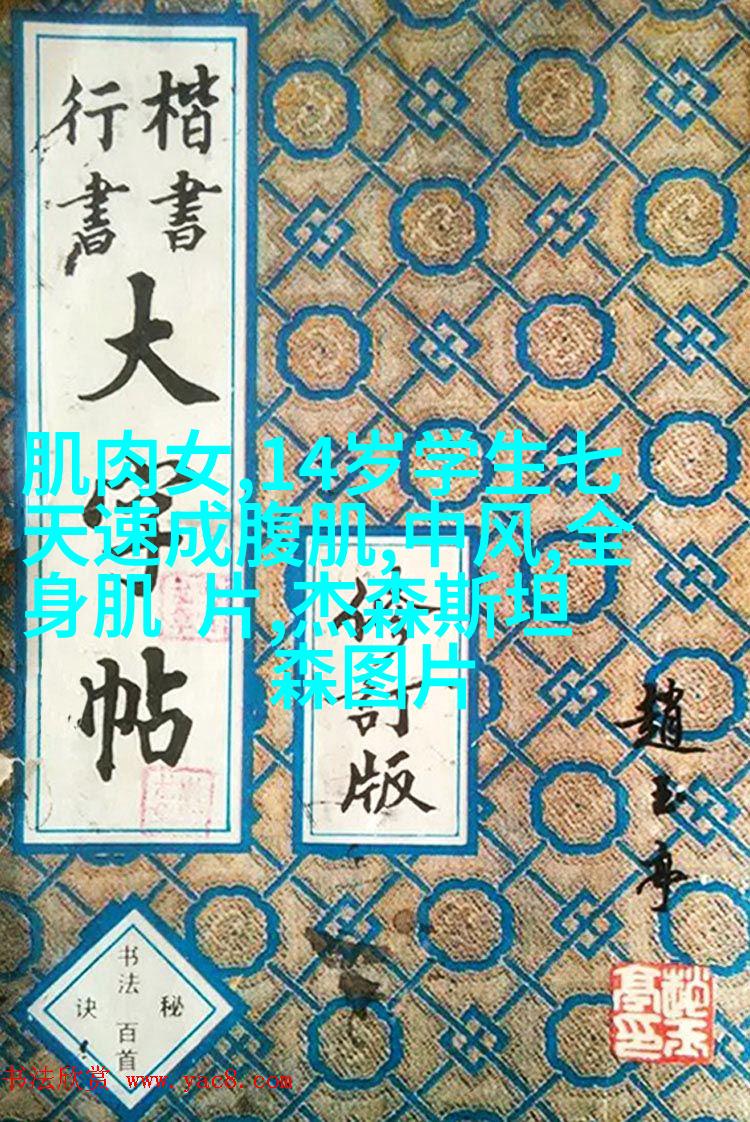 楷書
行書
大字帖
修订版
趙玉亭
书法
百首
秘
诀
肌肉女,14岁学生七
天速成腹肌,中风,全
身肌 片,杰森斯坦
森图片
书法欣赏 www.yac8.com